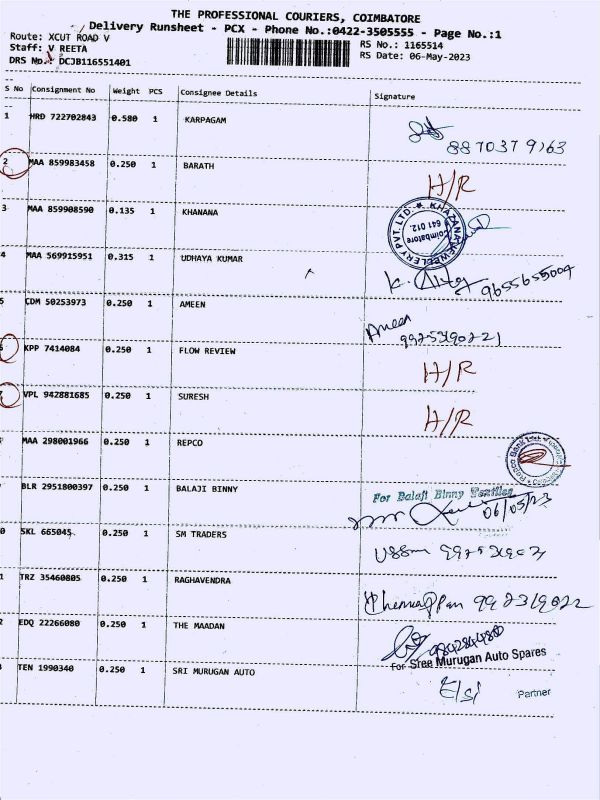 THE PROFESSIONAL COURIERS, COIMBATORE
Delivery Runsheet - PCX - Phone No.:0422-3505555 - Page No.:1
Route: XCUT ROAD V
RS No.: 1165514
Staff: V REETA
RS Date: 06-May-2023
DRS No.: DCJB116551401
S No Consignment No Weight PCS Consignee Details Signature
1 HRD 722702843 0.580 1 KARPAGAM
8870379163
2 MAA 859983458 0.250 1 BARATH H/R
3 MAA 859908590 0.135 1 KHANANA
KHAZANA JEWELLERY PVT. LTD. Coimbatore 641 012.
4 MAA 569915951 0.315 1 UDHAYA KUMAR
9655655004
5 CDM 50253973 0.250 1 AMEEN Ameen
6 KPP 7414084 0.250 1 FLOW REVIEW H/R
VPL 942881685 0.250 1 SURESH H/R
MAA 298001966 0.250 1 REPCO
Repco Bank Ltd.
BLR 2951800397 0.250 1 BALAJI BINNY
For Balaji Binny Textiles
06/05/23
0 SKL 665045 0.250 1 SM TRADERS
1 TRZ 35460805 0.250 1 RAGHAVENDRA
2 EDQ 22266080 0.250 1 THE MAADAN
9842844480
For Sree Murugan Auto Spares
TEN 1990340 0.250 1 SRI MURUGAN AUTO
Partner